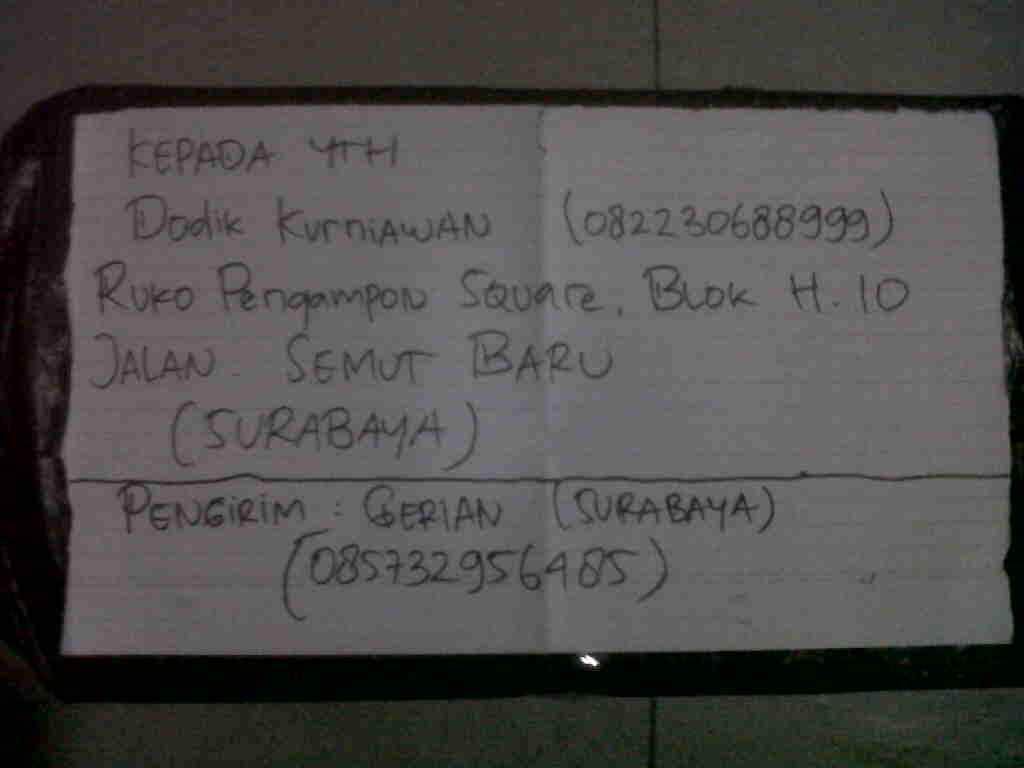 KEPADA YTH
Dodik KurniAWAN (082230688999)
Ruko Pengampon Square, Blok H.10
JALAN SEMUT BARU
(SURABAYA)
PENGIRIM : GERIAN (SURABAYA)
(085732956485)